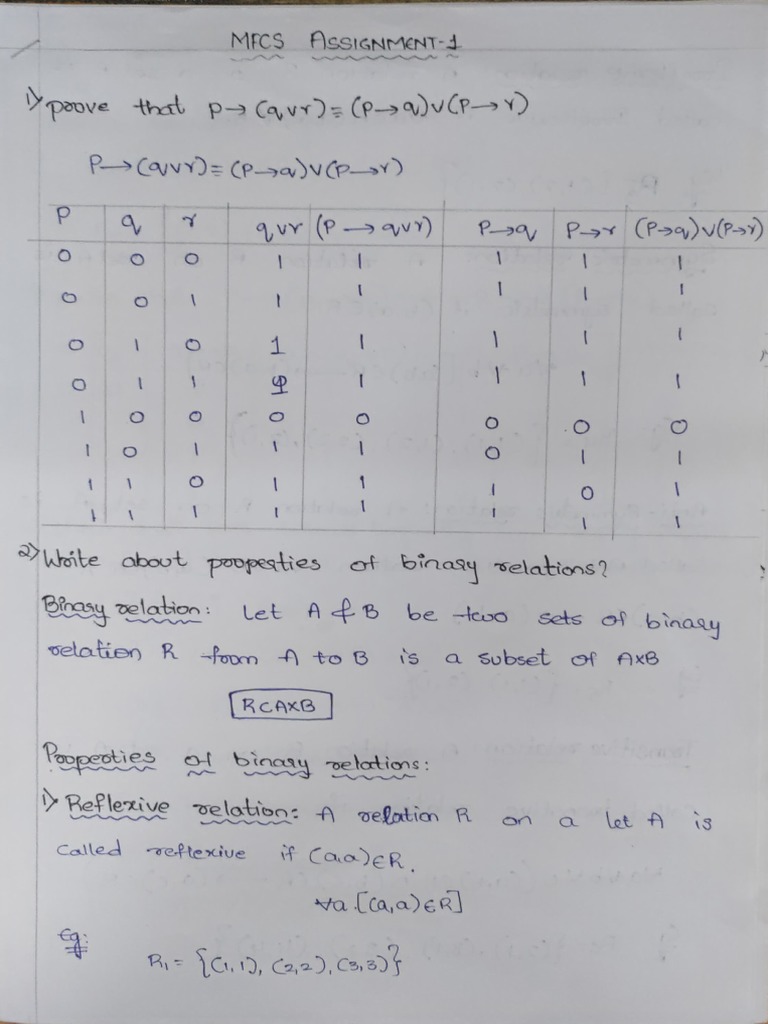 MFCS ASSIGNMENT-1
1) prove that p→(q∨r)≡(P→q)∨(P→r)
P→(q∨r)≡(P→q)∨(P→r)
P q r q∨r (P→q∨r) P→q P→r (P→q)∨(P→r)
0 0 0 1 1 1 1 1
0 0 1 1 1 1 1 1
0 1 0 1 1 1 1 1
0 1 1 1 1 1 1 1
1 0 0 0 0 0 0 0
1 0 1 1 1 0 1 1
1 1 0 1 1 1 0 1
1 1 1 1 1 1 1 1
2) Write about properties of binary relations?
Binary relation: Let A & B be two sets of binary
relation R from A to B is a subset of A×B
R⊂A×B
Properties of binary relations:
1) Reflexive relation: A relation R on a let A is
called reflexive if (a,a)∈R.
∀a.[(a,a)∈R]
Eg:
R₁ = {(1,1), (2,2), (3,3)}